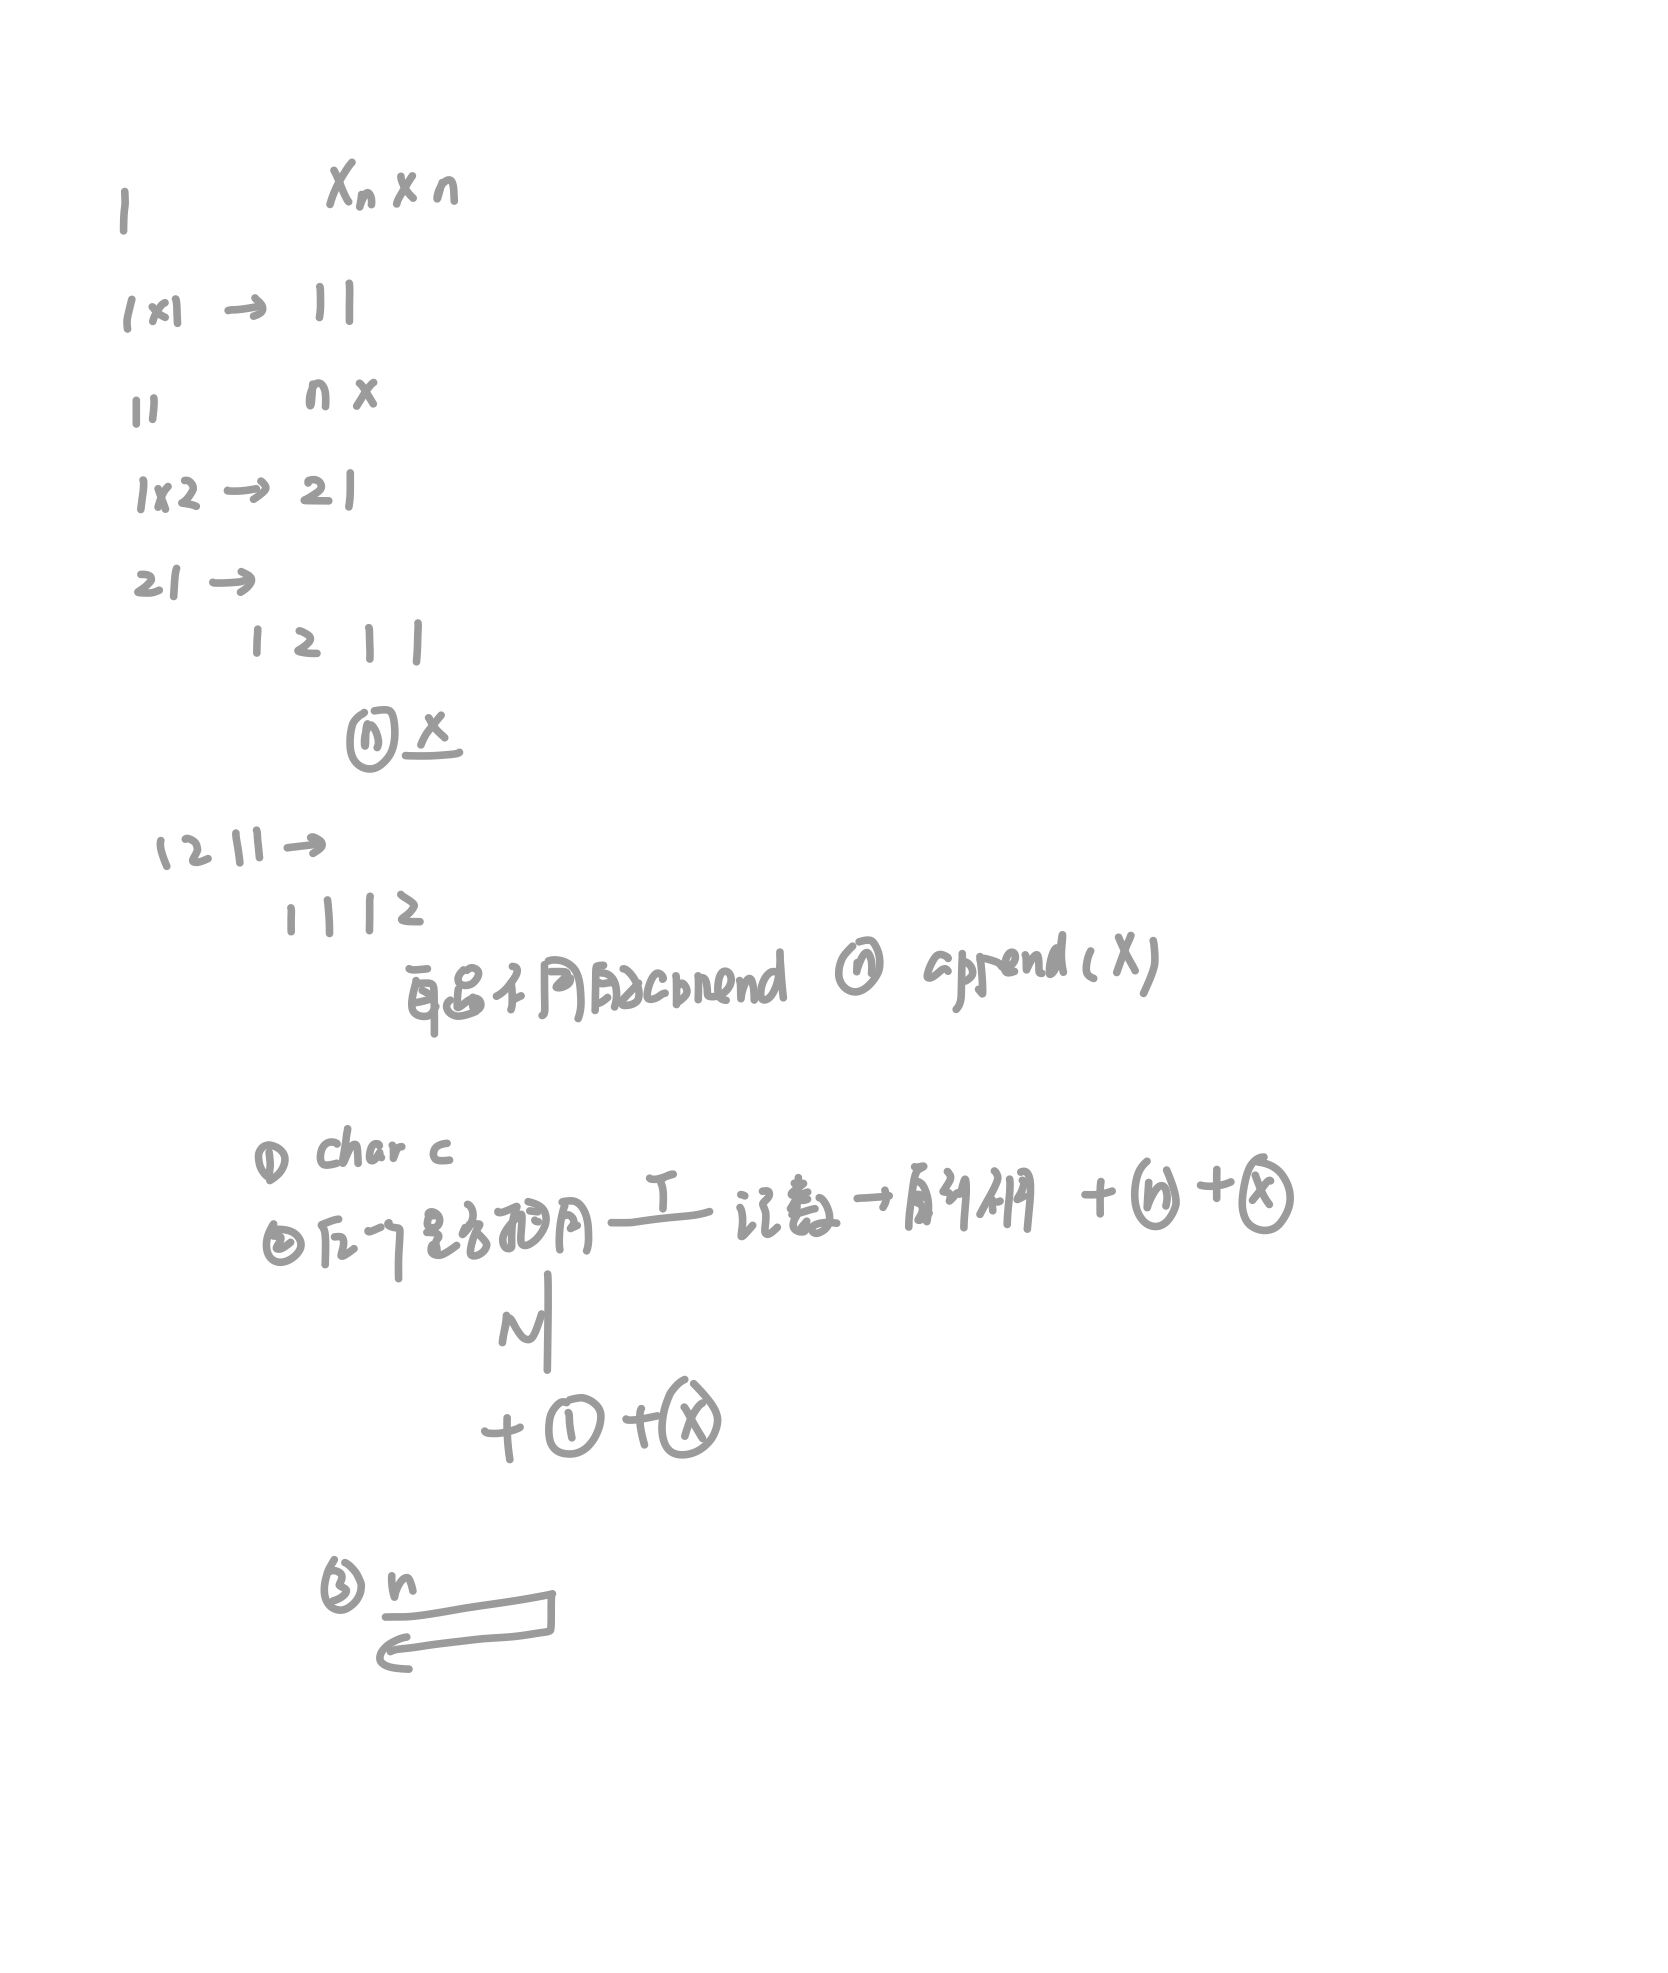 1 Xn x n
1x1 → 11
11 n x
1x2 → 21
21 →
1 2 1 1
n x
1211 →
1 1 1 2
append n append(X)
① char c
② 下一个是否相同 T 记数 → + n + x
N
+ 1 + x
③ n